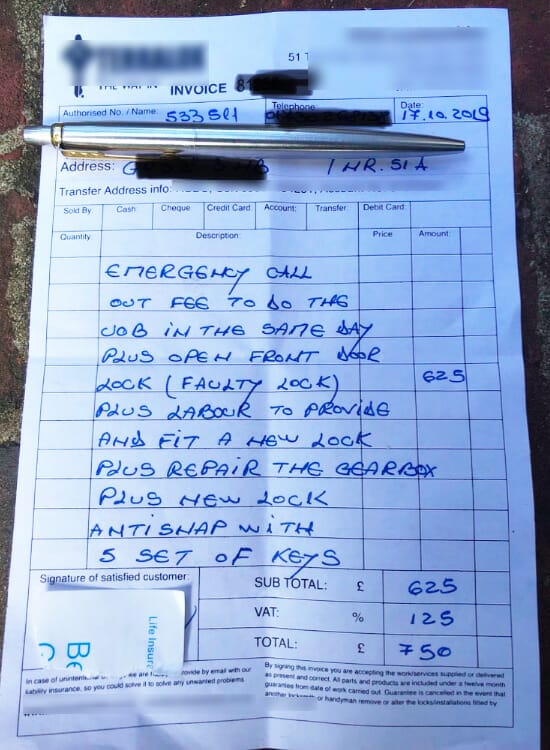 51
INVOICE 8
Authorised No. / Name: 533511 Telephone: Date: 17.10.2019
Address: G 1 HR. 51A
Transfer Address info:
Sold By Cash: Cheque Credit Card: Account: Transfer: Debit Card:
Quantity: Description: Price Amount:
EMERGENCY CALL
OUT FEE TO DO THE
JOB IN THE SAME DAY
PLUS OPEN FRONT DOOR
LOCK (FAULTY LOCK) 625
PLUS LABOUR TO PROVIDE
AND FIT A NEW LOCK
PLUS REPAIR THE GEARBOX
PLUS NEW LOCK
ANTISNAP WITH
5 SET OF KEYS
Signature of satisfied customer:
SUB TOTAL: £ 625
VAT: % 125
TOTAL: £ 750
Life Insur
Be
In case of unintentional we are provide by email with our
liability insurance, so you could solve it to solve any unwanted problems
By signing this invoice you are accepting the work/services supplied or delivered
as present and correct. All parts and products are included under a twelve month
guarantee from date of work carried out. Guarantee is cancelled in the event that
another or handyman remove or alter the locks/installations fitted by